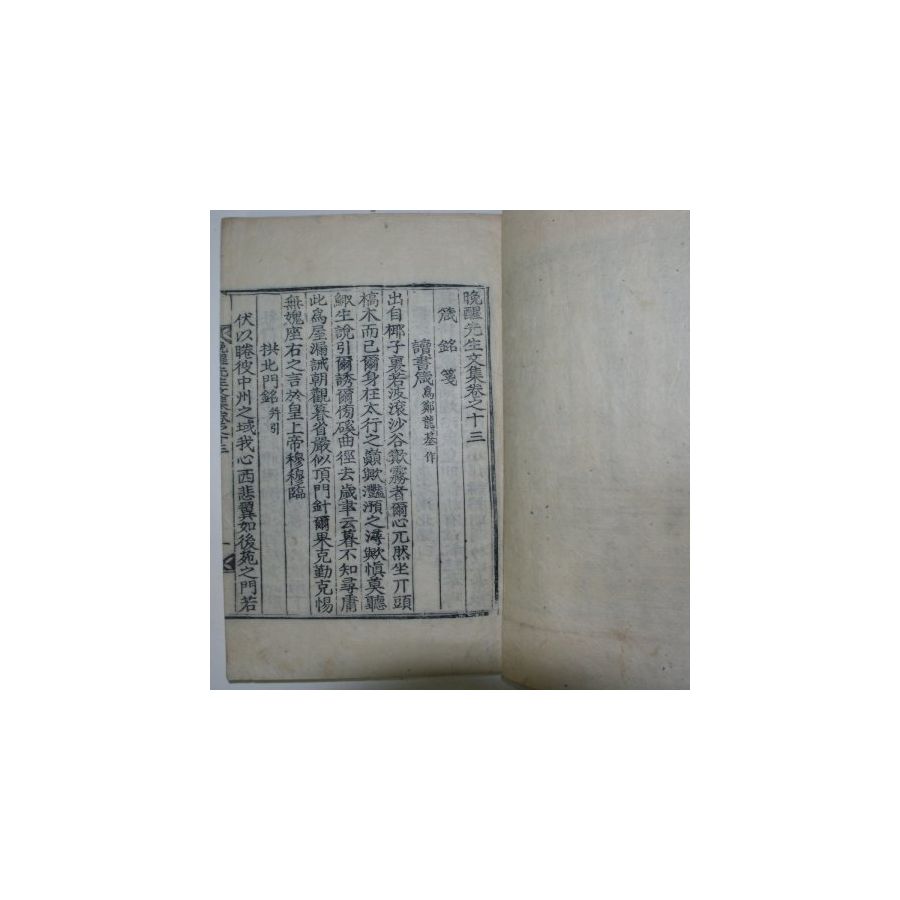 晚醒先生文集卷之十三
箴 銘 箋
讀書箴 爲鄭龍基作
出自椰子裏若波滾沙谷歕霧者爾心兀然坐丌頭
槁木而已爾身在太行之巔歟灩澦之潯歟愼莫聽
鯫生說引爾誘爾傍磎曲徑去歲聿云暮不知尋庸
此爲屋漏誡朝觀暮省嚴似頂門針爾果克勤克惕
無媿座右之言於皇上帝穆穆臨
拱北門銘 幷引
伏以睠彼中州之域我心西悲翼如後苑之門若
晚醒先生文集卷之十三
一